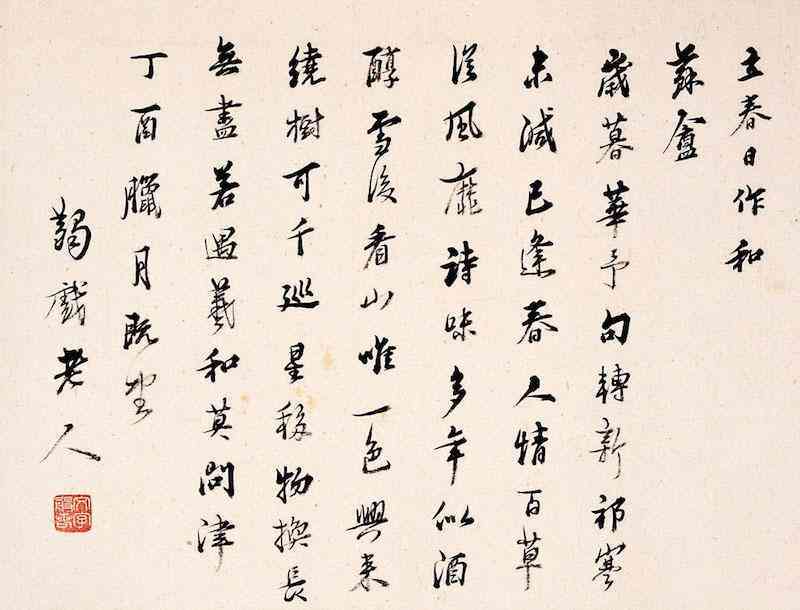 立春日作和
蘇盦
歲暮華予句轉新祁寒
未減已逢春人情百草
從風靡詩味多年似酒
醇雪後看山唯一色興來
繞樹可千巡星移物換長
無盡若遇羲和莫問津
丁酉臘月既望
蠲戲老人